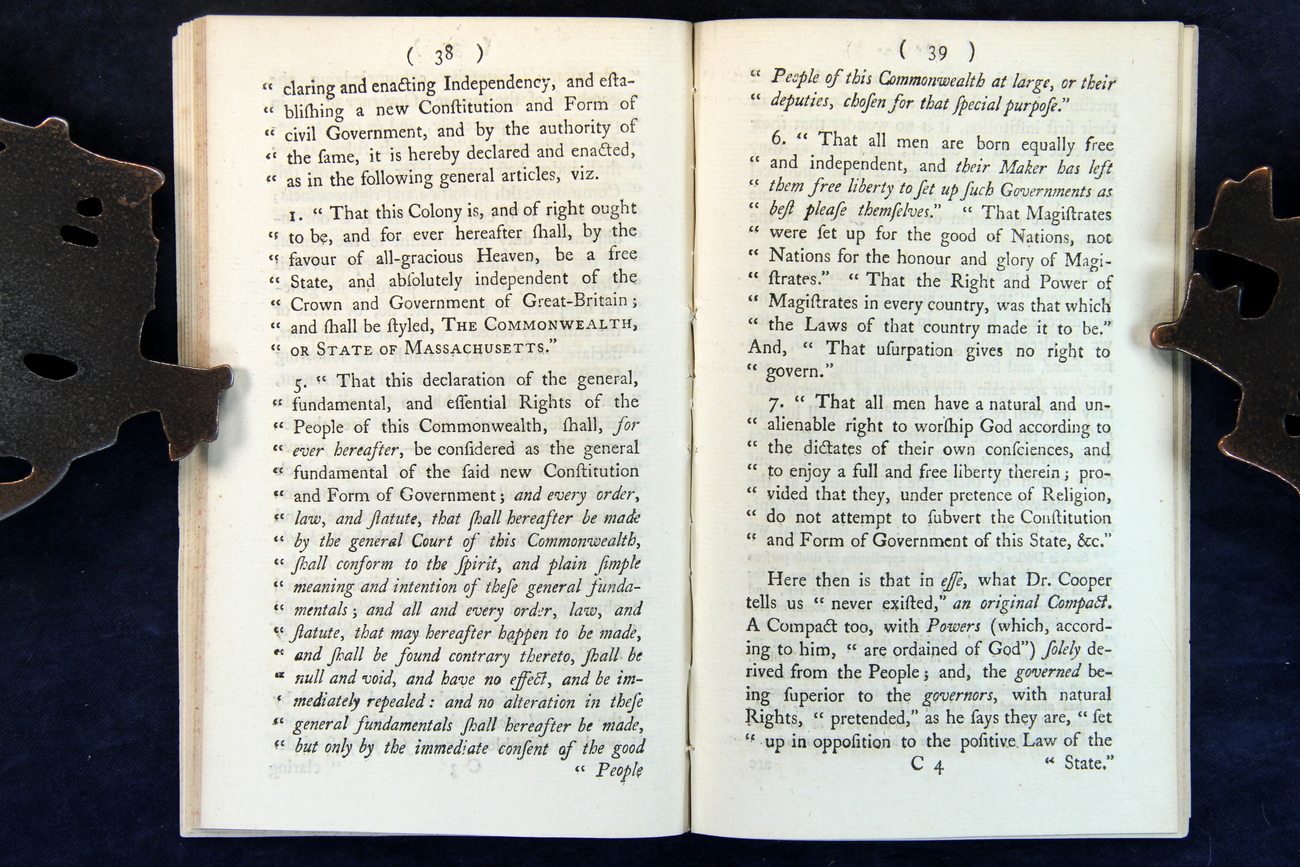 ( 38 )
“ claring and enacting Independency, and eſta-
“ bliſhing a new Conſtitution and Form of
“ civil Government, and by the authority of
“ the ſame, it is hereby declared and enacted,
“ as in the following general articles, viz.
1. “ That this Colony is, and of right ought
“ to be, and for ever hereafter ſhall, by the
“ favour of all-gracious Heaven, be a free
“ State, and abſolutely independent of the
“ Crown and Government of Great-Britain ;
“ and ſhall be ſtyled, THE COMMONWEALTH,
“ OR STATE OF MASSACHUSETTS.”
5. “ That this declaration of the general,
“ fundamental, and eſſential Rights of the
“ People of this Commonwealth, ſhall, for
“ ever hereafter, be conſidered as the general
“ fundamental of the ſaid new Conſtitution
“ and Form of Government ; and every order,
“ law, and ſtatute, that ſhall hereafter be made
“ by the general Court of this Commonwealth,
“ ſhall conform to the ſpirit, and plain ſimple
“ meaning and intention of theſe general funda-
“ mentals ; and all and every order, law, and
“ ſtatute, that may hereafter happen to be made,
“ and ſhall be found contrary thereto, ſhall be
“ null and void, and have no effect, and be im-
‘ mediately repealed : and no alteration in theſe
“ general fundamentals ſhall hereafter be made,
“ but only by the immediate conſent of the good
“ People
( 39 )
“ People of this Commonwealth at large, or their
“ deputies, choſen for that ſpecial purpoſe.”
6. “ That all men are born equally free
“ and independent, and their Maker has left
“ them free liberty to ſet up ſuch Governments as
“ beſt pleaſe themſelves.” “ That Magiſtrates
“ were ſet up for the good of Nations, not
“ Nations for the honour and glory of Magi-
“ ſtrates.” “ That the Right and Power of
“ Magiſtrates in every country, was that which
“ the Laws of that country made it to be.”
And, “ That uſurpation gives no right to
“ govern.”
7. “ That all men have a natural and un-
“ alienable right to worſhip God according to
“ the dictates of their own conſciences, and
“ to enjoy a full and free liberty therein ; pro-
“ vided that they, under pretence of Religion,
“ do not attempt to ſubvert the Conſtitution
“ and Form of Government of this State, &c.”
Here then is that in eſſe, what Dr. Cooper
tells us “ never exiſted,” an original Compact.
A Compact too, with Powers (which, accord-
ing to him, “ are ordained of God”) ſolely de-
rived from the People ; and, the governed be-
ing ſuperior to the governors, with natural
Rights, “ pretended,” as he ſays they are, “ ſet
“ up in oppoſition to the poſitive Law of the
C 4 “ State.”